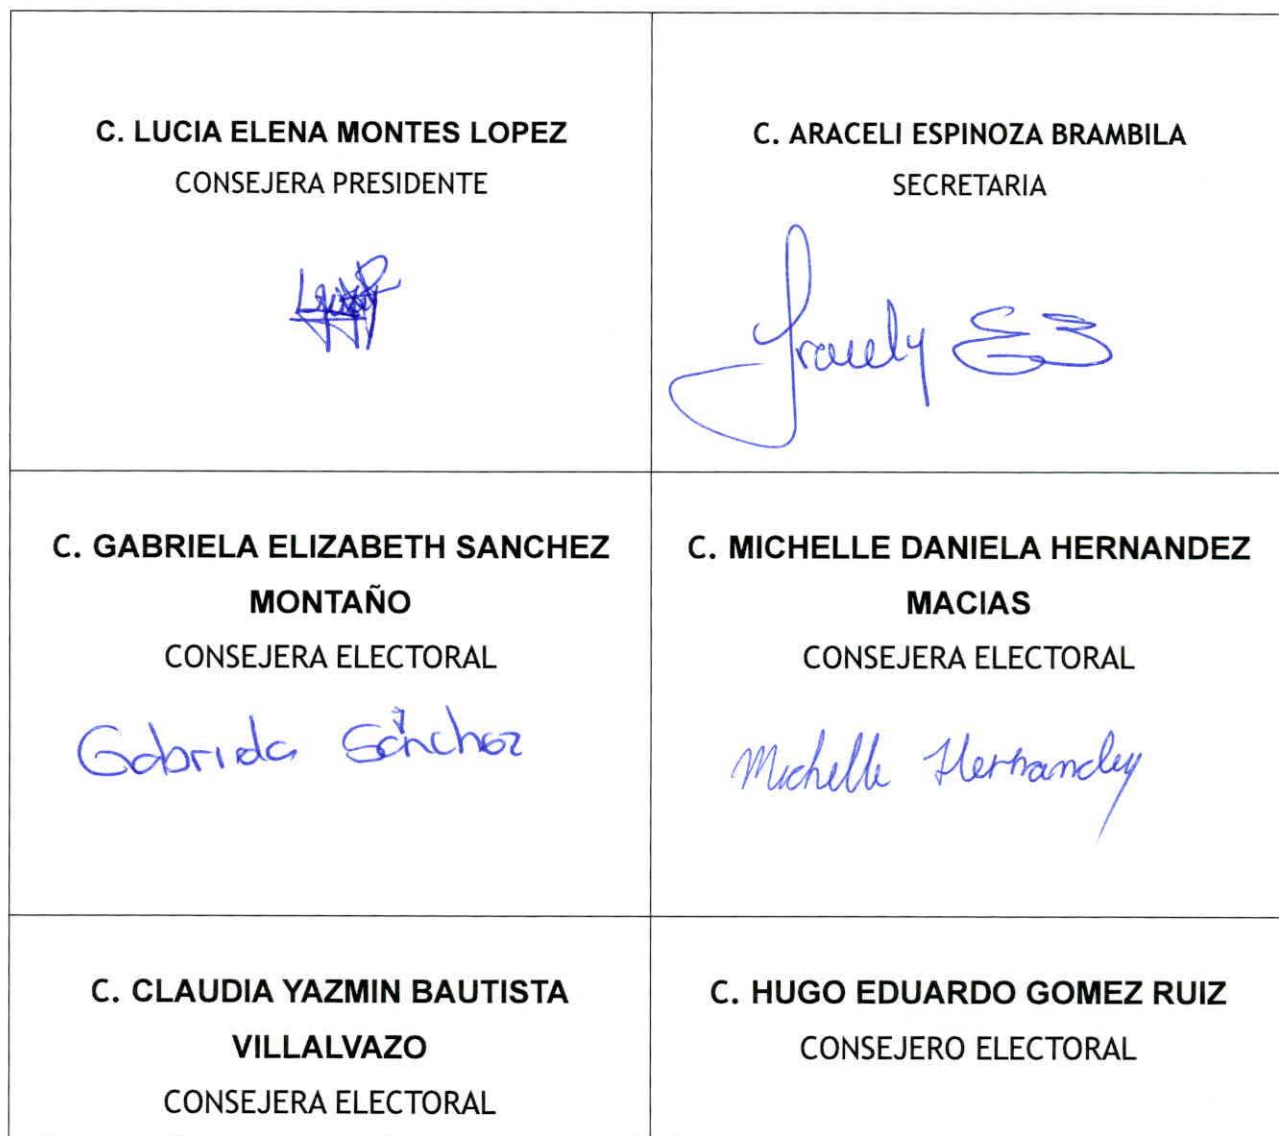 C. LUCIA ELENA MONTES LOPEZ
CONSEJERA PRESIDENTE
C. ARACELI ESPINOZA BRAMBILA
SECRETARIA
Aracely EB
C. GABRIELA ELIZABETH SANCHEZ
MONTAÑO
CONSEJERA ELECTORAL
Gabriela Sánchez
C. MICHELLE DANIELA HERNANDEZ
MACIAS
CONSEJERA ELECTORAL
Michelle Hernandez
C. CLAUDIA YAZMIN BAUTISTA
VILLALVAZO
CONSEJERA ELECTORAL
C. HUGO EDUARDO GOMEZ RUIZ
CONSEJERO ELECTORAL